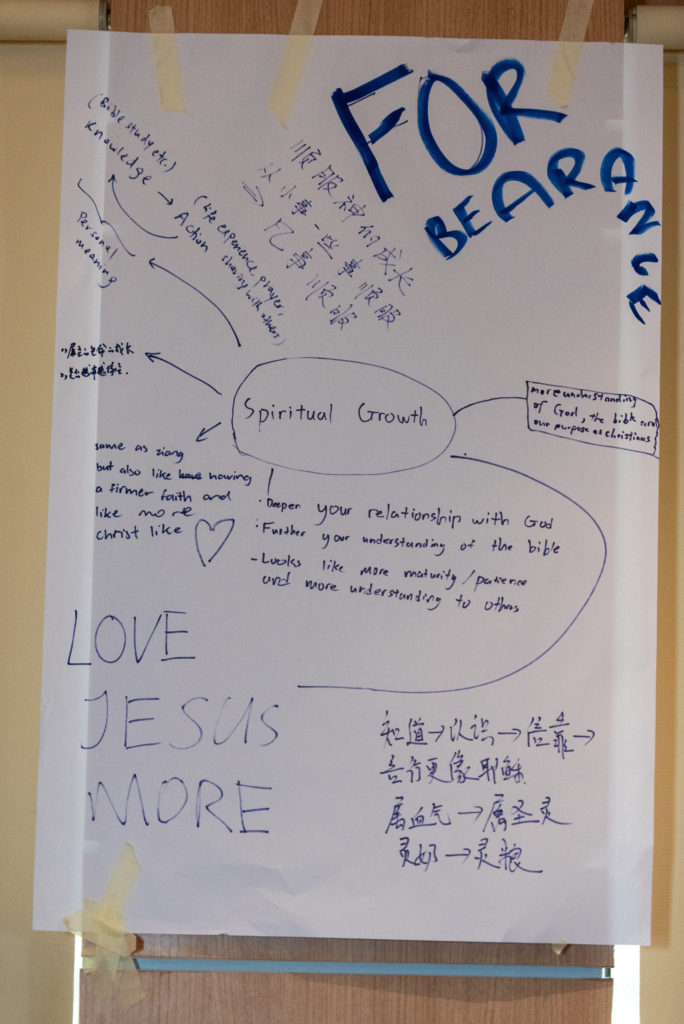 FOR
BEARANCE
(Bible study etc.)
knowledge → Action
(life experience, prayer,
sharing with others)
Personal
meaning
顺服神的成长
从小事一些事顺服
⇒ 凡事顺服
Spiritual Growth
more understanding
of God, the bible and
our purpose as christians
same as ziang
but also like having
a firmer faith and
like more
christ like
· Deepen your relationship with God
· Further your understanding of the bible
- Looks like more maturity/patience
and more understanding to others
LOVE
JESUS
MORE
知道→认识→信靠→
言行更像耶稣
属血气→属圣灵
灵奶→灵粮